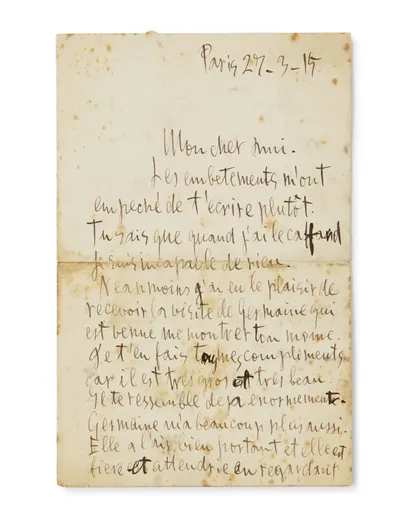 Paris 27-3-15
Mon cher Ami.
Les embetements m'ont
empeché de t'ecrire plutôt.
Tu sais que quand j'ai le caffard
Je suis incapable de rien.
Neanmoins j'ai eu le plaisir de
recevoir la visite de Germaine qui
est venue me montrer ton mome.
Je t'en fais tous mes compliments
car il est tres gros et tres beau.
Il te ressemble deja enormement.
Germaine m'a beaucoup plus aussi.
Elle a l'air bien portant et elle est
fiere et attendrie en regardant